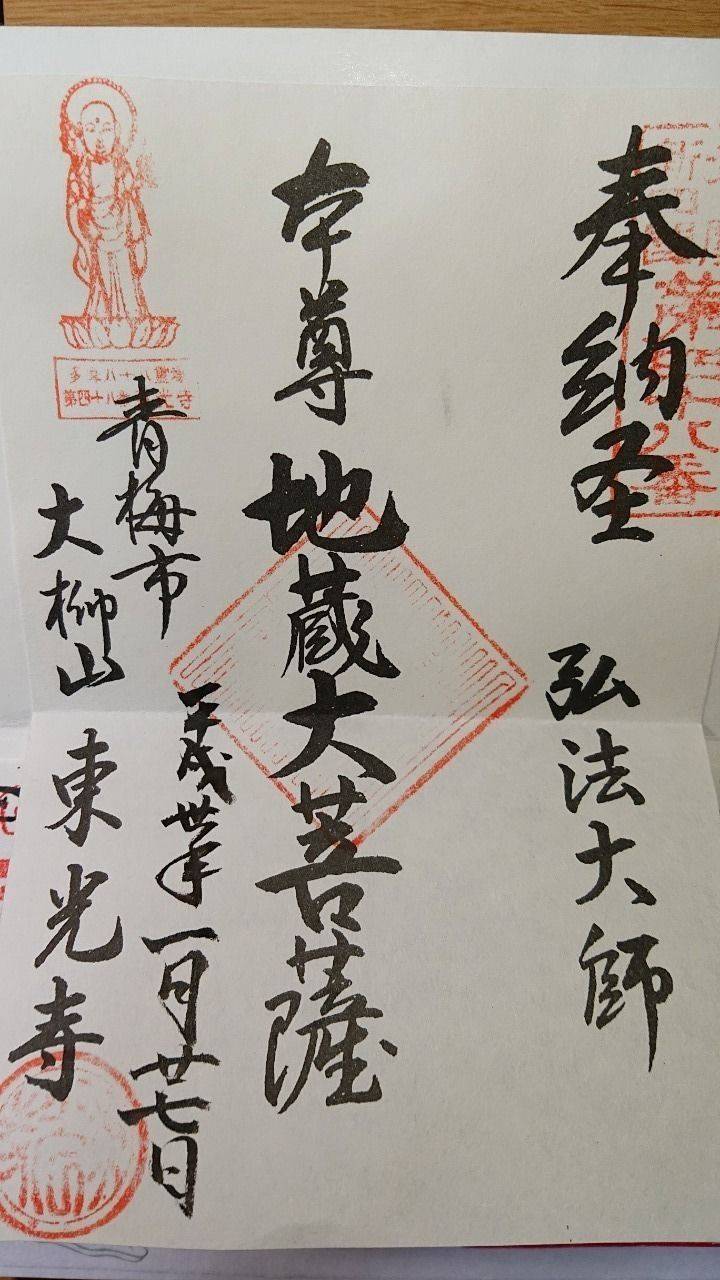 奉納圣 弘法大師
本尊 地蔵大菩薩
平成丗年一月廿七日
青梅市
大柳山 東光寺
多摩八十八霊場
第四十八